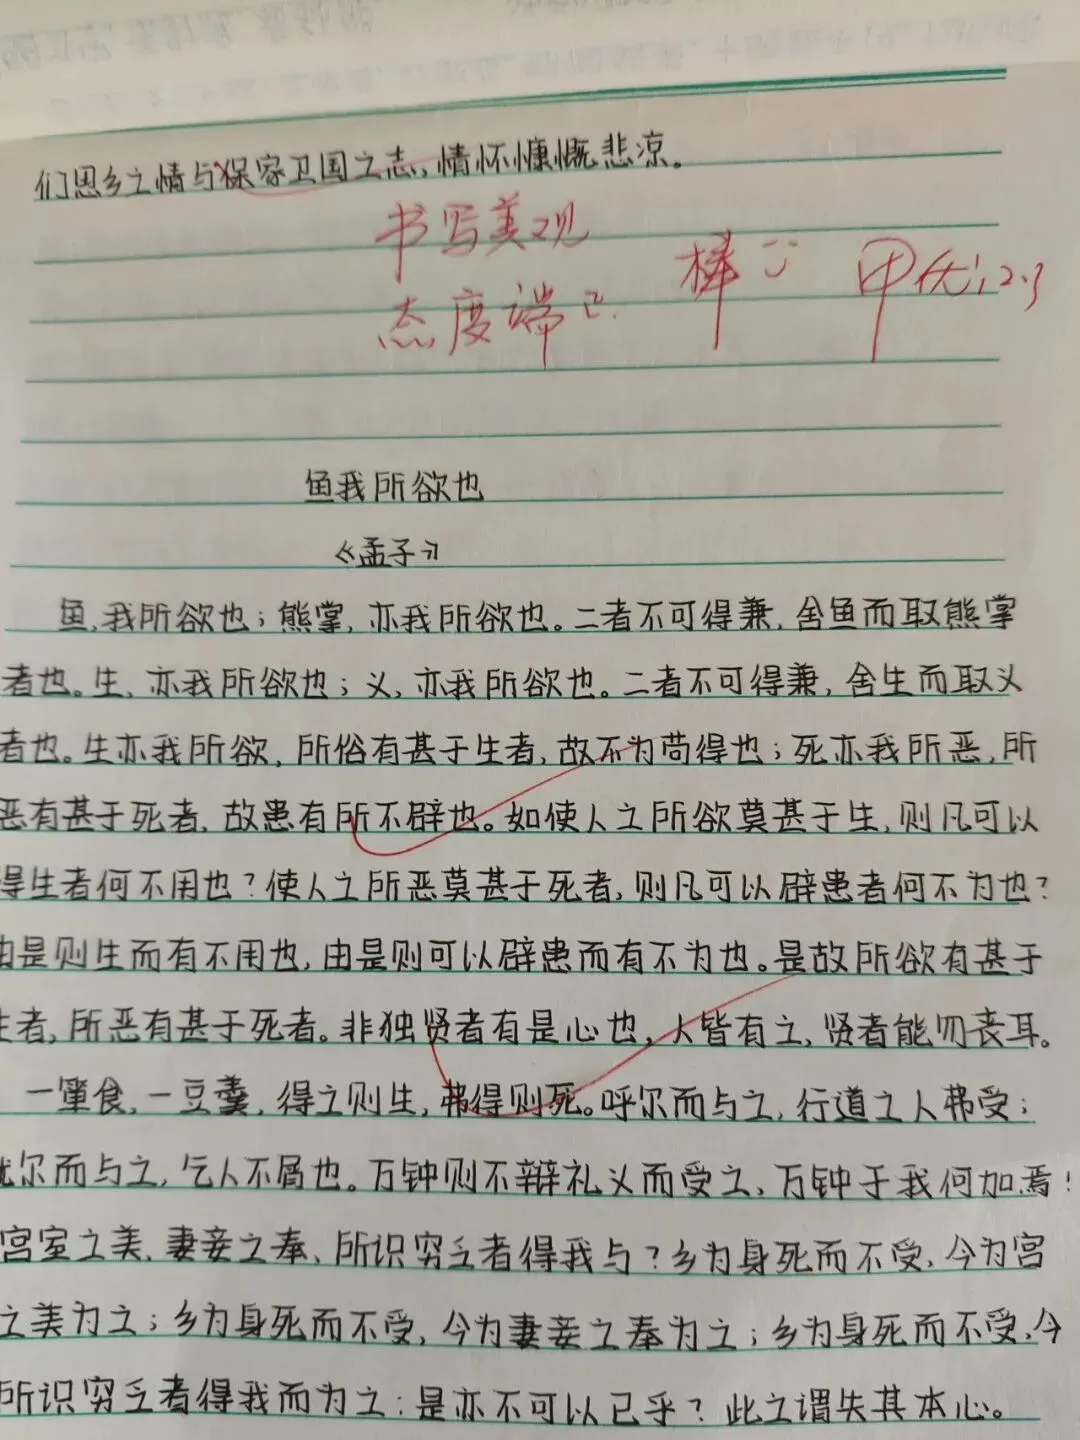 们思乡之情与保家卫国之志，情怀慷慨悲凉。
书写美观
态度端正. 棒 甲优1,2.3
鱼我所欲也
《孟子》
鱼，我所欲也；熊掌，亦我所欲也。二者不可得兼，舍鱼而取熊掌
者也。生，亦我所欲也；义，亦我所欲也。二者不可得兼，舍生而取义
者也。生亦我所欲，所俗有甚于生者，故不为苟得也；死亦我所恶，所
恶有甚于死者，故患有所不辟也。如使人之所欲莫甚于生，则凡可以
得生者何不用也？使人之所恶莫甚于死者，则凡可以辟患者何不为也？
由是则生而有不用也，由是则可以辟患而有不为也。是故所欲有甚于
生者，所恶有甚于死者。非独贤者有是心也，人皆有之，贤者能勿丧耳。
一箪食，一豆羹，得之则生，弗得则死。呼尔而与之，行道之人弗受；
尔而与之，乞人不屑也。万钟则不辩礼义而受之，万钟于我何加焉！
宫室之美、妻妾之奉、所识穷乏者得我与？乡为身死而不受，今为宫
之美为之；乡为身死而不受，今为妻妾之奉为之；乡为身死而不受，今
所识穷乏者得我而为之：是亦不可以已乎？此之谓失其本心。